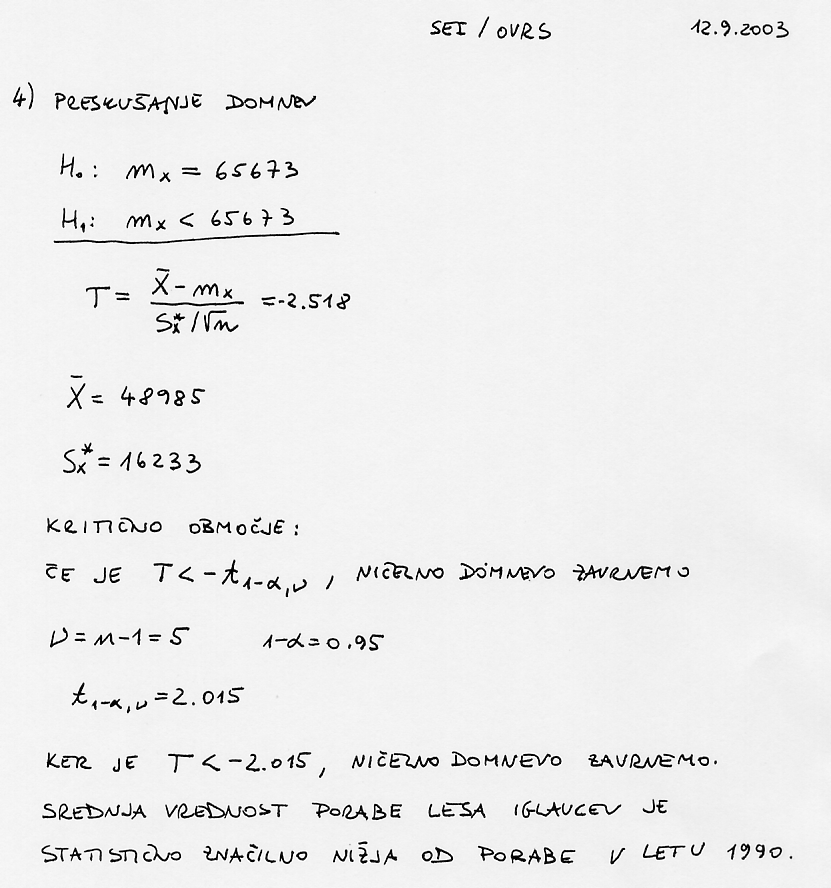 SEI / OVRS 12.9.2003
4) PRESKUŠANJE DOMNEV
H₀: mₓ = 65673
H₁: mₓ < 65673
T = (X̄ - mₓ) / (Sₓ* / √n) = -2.518
X̄ = 48985
Sₓ* = 16233
KRITIČNO OBMOČJE:
ČE JE T < - t₁₋α,ν , NIČELNO DOMNEVO ZAVRNEMO
ν = n-1 = 5 1-α = 0.95
t₁₋α,ν = 2.015
KER JE T < -2.015, NIČELNO DOMNEVO ZAVRNEMO.
SREDNJA VREDNOST PORABE LESA IGLAVCEV JE
STATISTIČNO ZNAČILNO NIŽJA OD PORABE V LETU 1990.